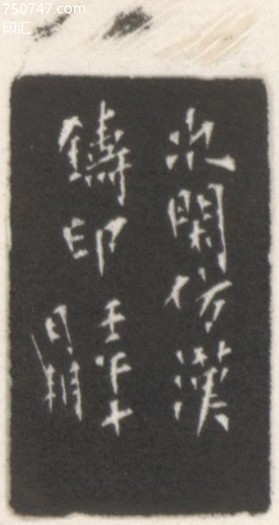 750747.com
印汇
次閑仿漢
鑄印壬午十
月朔